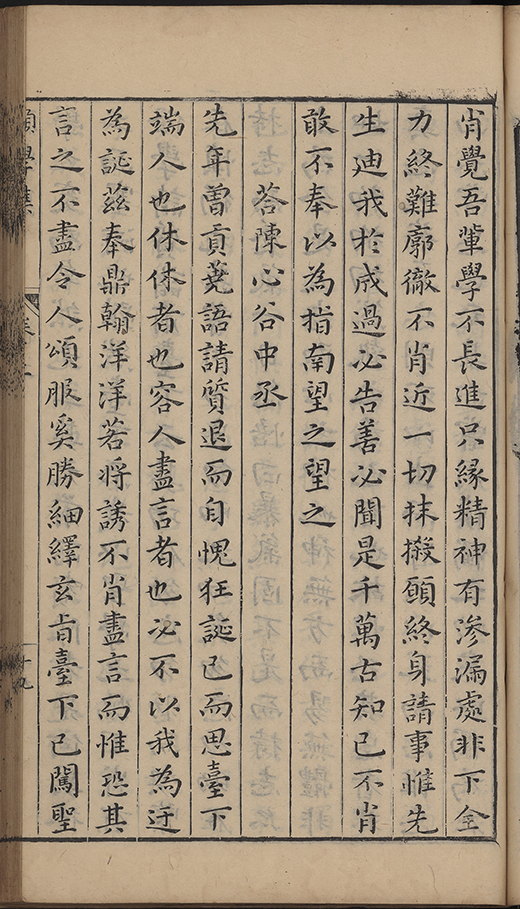 肖覺吾軰學不長進只緣精神有滲漏處非下全
力終難廓徹不肖近一切抹摋願終身請事惟先
生迪我於成過必告善必聞是千萬古知己不肖
敢不奉以為指南望之望之
荅陳心谷中丞
先年曾貢蕘語請質退而自愧狂誕已而思臺下
端人也休休者也容人盡言者也必不以我為迂
為誕茲奉鼎翰洋洋若將誘不肖盡言而惟恐其
言之不盡令人頌服奚勝細繹玄旨臺下已闖聖
學集
十九